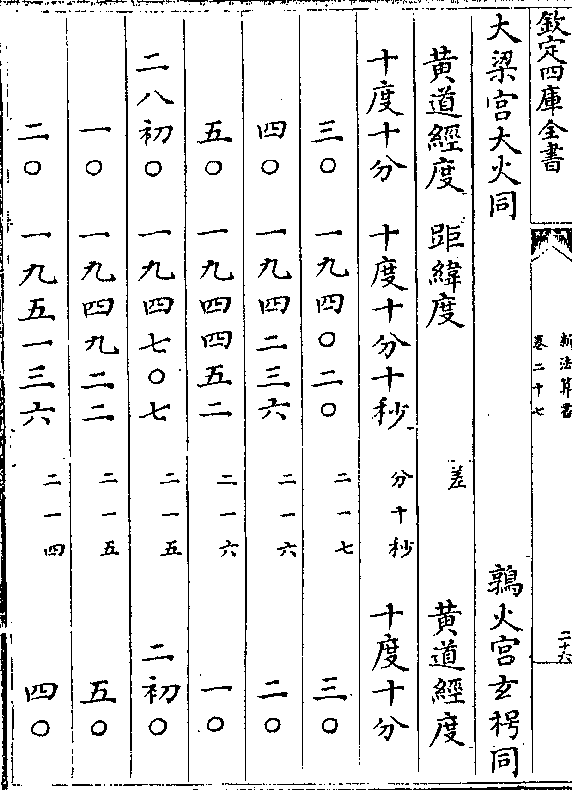 欽定四庫全書
新法算書
卷二十七
二十六
大梁宫大火同 鶉火宫玄枵同
黄道經度 距緯度 差 黄道經度
十度十分 十度十分十秒 分十秒 十度十分
三〇 一九四〇二〇 二一七 三〇
四〇 一九四二三六 二一六 二〇
五〇 一九四四五二 二一六 一〇
二八初〇 一九四七〇七 二一五 二初〇
一〇 一九四九二二 二一五 五〇
二〇 一九五一三六 二一四 四〇